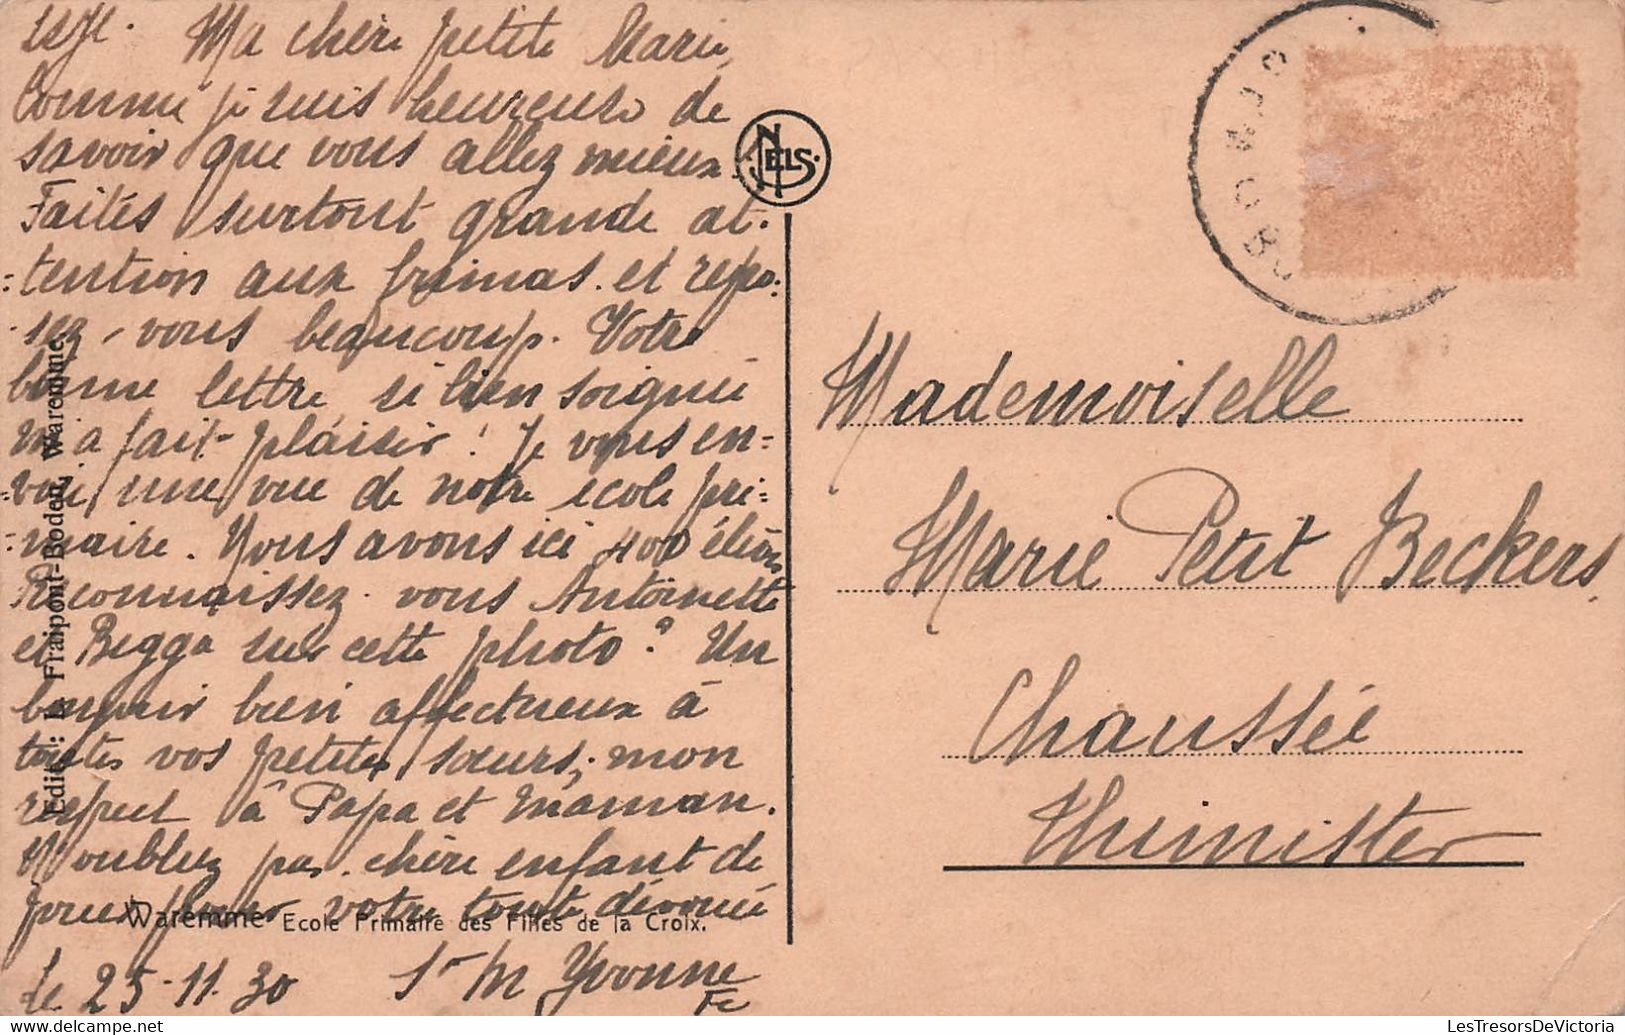 Ma chère petite Marie,
Comme je suis heureuse de
savoir que vous allez mieux.
Faites surtout grande at-
=tention aux frimas. et repo=
-sez-vous beaucoup. Votre
bonne lettre si bien soignée
m'a fait plaisir ! Je vous en=
=voie une vue de notre école pri=
=maire. Nous avons ici 400 élèves
Reconnaissez-vous Antoinette
et Begga sur cette photo ? Un
bonjour bien affectueux à
toutes vos petites sœurs, mon
respect à Papa et Maman.
N'oubliez pas chère enfant de
prier pour votre toute dévouée
Sr M Yvonne
Fc
Le 25-11-30
NELS
Edit.: Fraipont-Boden, Waremme.
Waremme Ecole Primaire des Filles de la Croix.
Mademoiselle
Marie Petit Beckers
Chaussée
Thimister
LesTresorsDeVictoria
LesTresorsDeVictoria.com